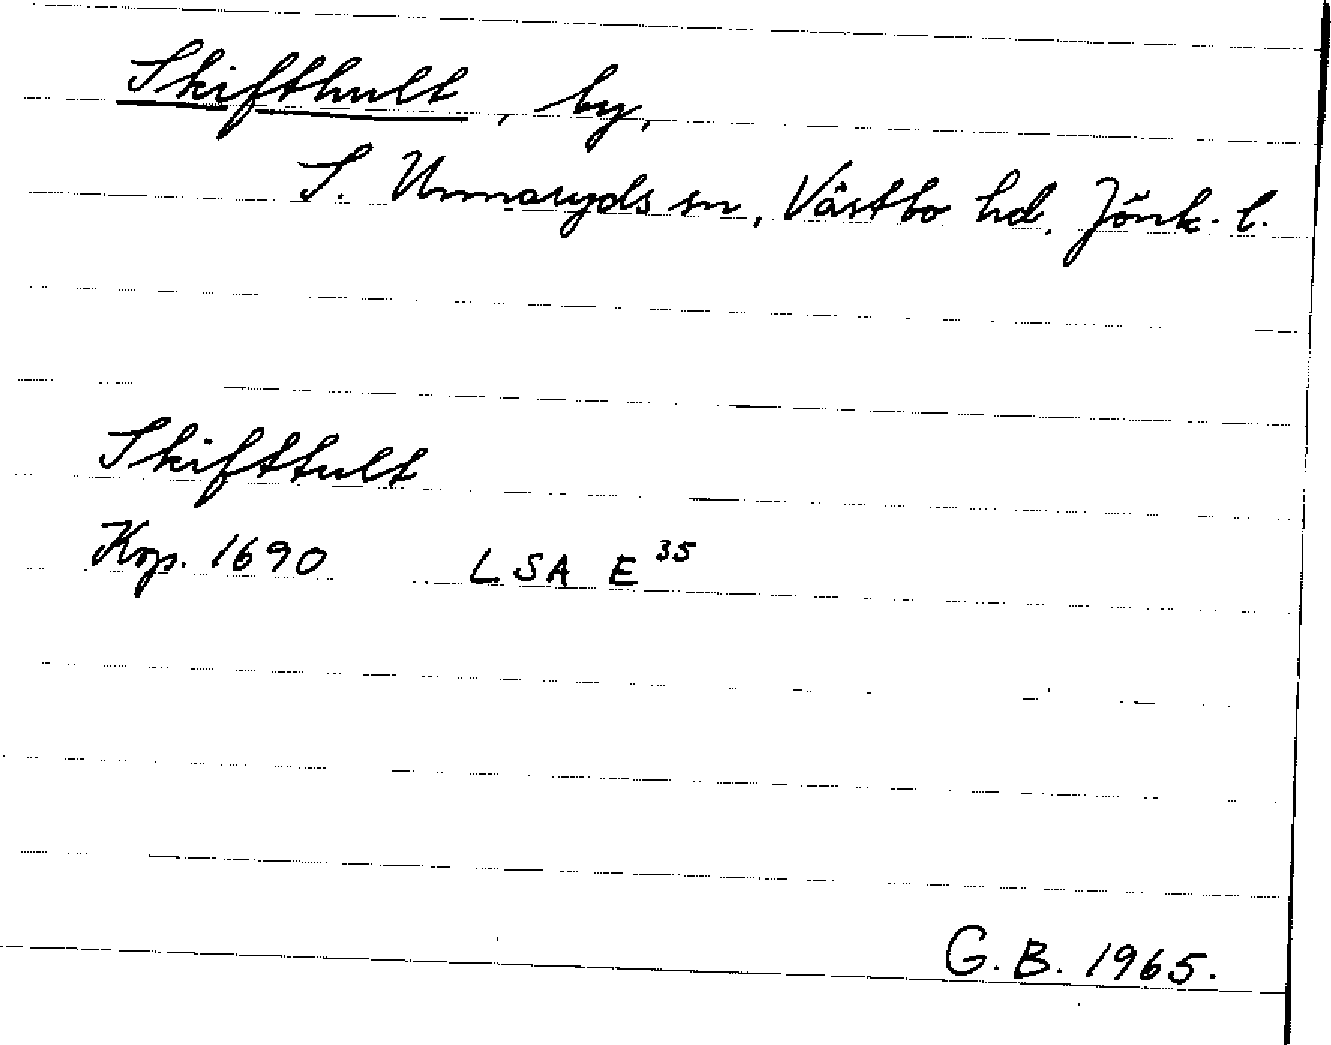 Skifthult, by,
S. Unnaryds sn, Västbo hd. Jönk. l.
Skifttult
Kop. 1690 LSA E 35
G.B. 1965.